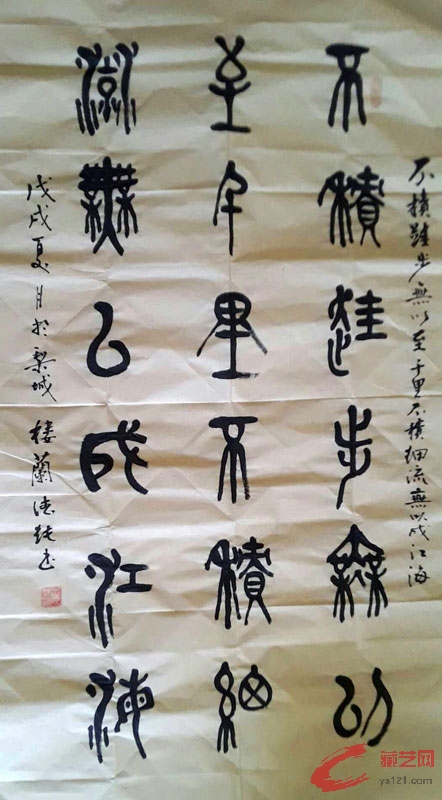 不積跬步無以至千里不積細流無以成江海
不積跬步無以
至千里不積細
流無以成江海
戊戌夏月於梨城樓蘭书
藏艺网
ys121.com